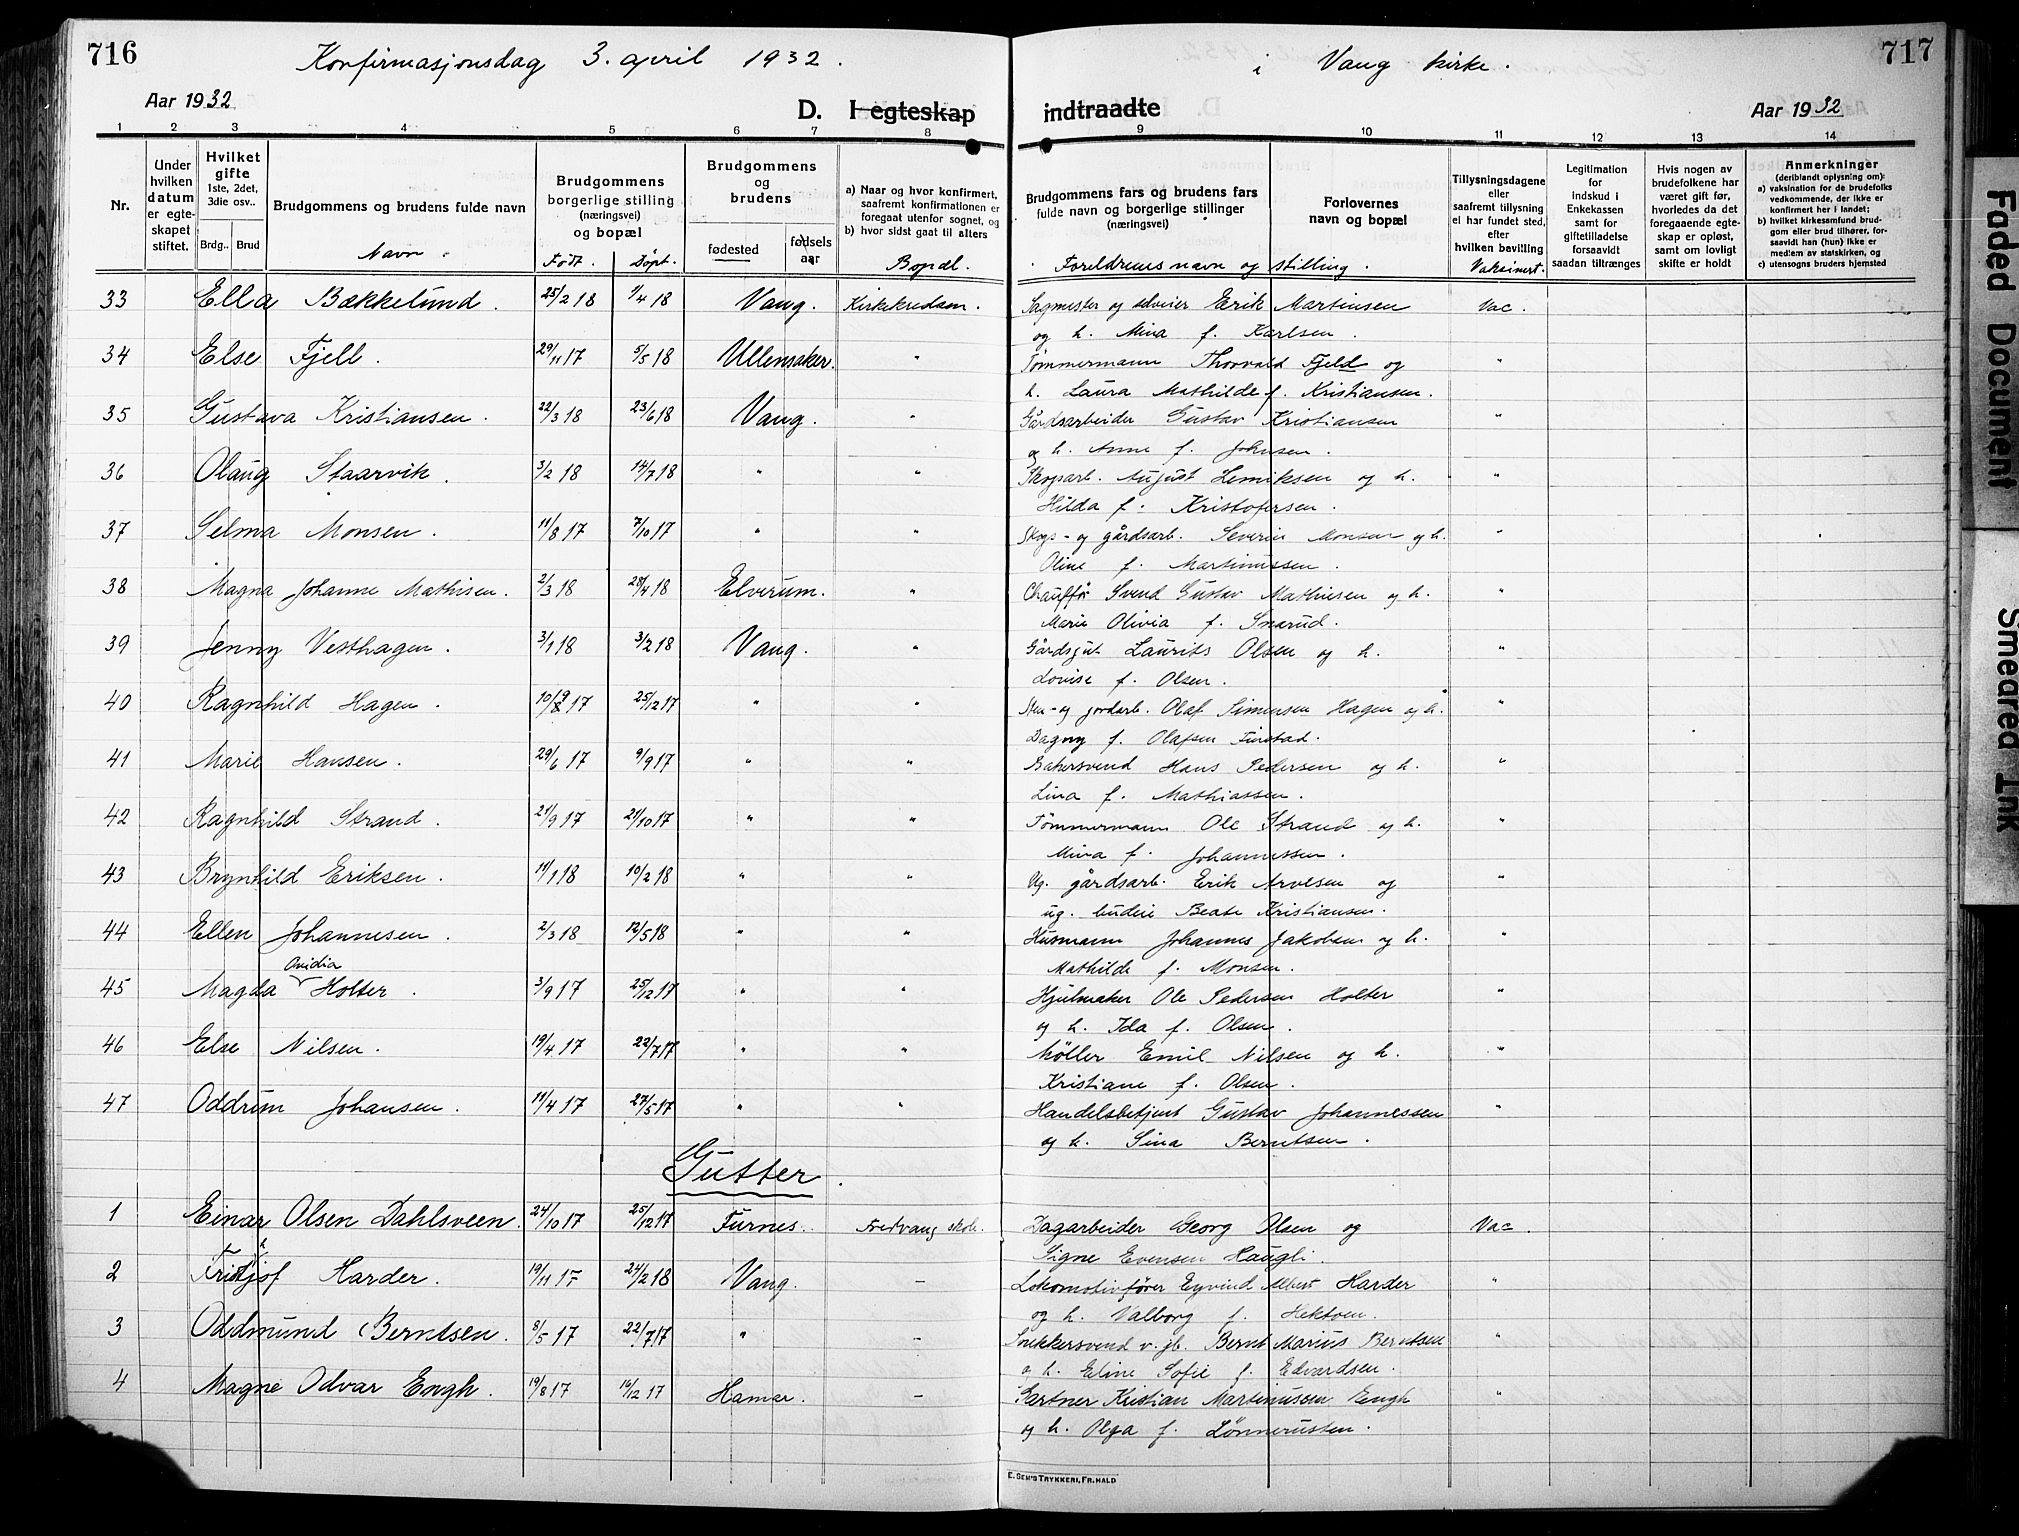 716
717
Konfirmasjonsdag 3. april 1932.
i Vang kirke.
Aar 1932
D. I egteskap
indtraadte
Aar 1932
1 2 3 4 5 6 7 8
9 10 11 12 13 14
Nr.
Under hvilken datum er egteskapet stiftet.
Hvilket gifte 1ste, 2det, 3die osv..
Brdg.. Brud
Brudgommens og brudens fulde navn
Navn.
Brudgommens borgerlige stilling (næringsvei) og bopæl
Født. Døpt.
Brudgommens og brudens
fødested
fødsels aar
a) Naar og hvor konfirmert, saafremt konfirmationen er foregaat utenfor sognet, og
b) hvor sidst gaat til alters
Bopæl.
Brudgommens fars og brudens fars fulde navn og borgerlige stillinger (næringsvei)
Foreldrenes navn og stilling.
Forlovernes navn og bopæl
Tillysningsdagene eller saafremt tillysning ei har fundet sted, efter hvilken bavilling
Vaksinert.
Legitimation for indskud i Enkekassen samt for giftetilladelse forsaavidt saadan tiltrænges
Hvis nogen av brudefolkene har været gift før, hvorledes da det foregaaende egteskap er opløst, samt om lovligt skifte er holdt
Anmerkninger (deriblandt oplysning om):
a) vaksination for de brudefolks vedkommende, der ikke er konfirmert her i landet;
b) hvilket kirkesamfund brudgom eller brud tilhører, forsaavidt han (hun) ikke er medlem av statskirken, og
c) utensogns bruders hjemsted
33 Ella Bækkelund. 25/2 18 1/4 18 Vang. Kirkekredsen. Sagmester og selveier Erik Martinsen Vac.
og h. Mina f. Karlsen.
34 Else Fjell. 29/11 17 5/5 18 Ullensaker. " Tømmermann Thorvald Fjeld og "
h. Laura Mathilde f. Kristiansen.
35 Gustava Kristiansen. 22/3 18 23/6 18 Vang. " Gårdsarbeider Gustav Kristiansen "
og h. Anne f. Johnsen.
36 Olaug Staarvik. 3/2 18 14/7 18 " " Skogsarb. August Lemiksen og h. "
Hilda f. Kristofersen.
37 Selma Monsen. 11/8 17 7/10 17 " " Skogs- og gårdsarb. Severin Monsen og h. "
Oline f. Martinussen.
38 Magna Johanne Mathisen. 2/3 18 28/4 18 Elverum. " Chauffør Svend Gustav Mathiesen og h. "
Marie Olivia f. Snarud.
39 Jenny Vesthagen. 3/1 18 3/2 18 Vang. " Gårdsgut Laurits Olsen og h. "
Lovise f. Olsen.
40 Ragnhild Hagen. 10/9 17 25/12 17 " " Sten- og jordarb. Olaf Simensen Hagen og h. "
Dagny f. Olafsen Finstad.
41 Marie Hansen. 29/6 17 9/9 17 " " Bakersvend Hans Pedersen og h. "
Lina f. Mathiassen.
42 Ragnhild Strand. 21/9 17 21/10 17 " " Tømmermann Ole Strand og h. "
Mina f. Johannessen.
43 Brynhild Eriksen. 11/1 18 10/2 18 " " Ug. gårdsarb. Erik Arvesen og "
ug. budeie Beate Kristiansen.
44 Ellen Johannesen. 2/3 18 12/5 18 " " Husmann Johannes Jakobsen og h. "
Mathilde f. Monsen.
45 Magda Ovidia Holter. 3/9 17 25/12 17 " " Hjulmaker Ole Pedersen Holter "
og h. Ida f. Olsen.
46 Else Nilsen. 19/4 17 22/7 17 " " Møller Emil Nilsen og h. "
Kristiane f. Olsen.
47 Oddrun Johansen. 11/4 17 27/5 17 " " Handelsbetjent Gustav Johannessen "
og h. Sina Berntsen.
Gutter.
1 Einar Olsen Dahlsveen. 24/10 17 25/12 17 Furnes. Fredvang skole. Dagarbeider Georg Olsen og Vac
Signe Evensen Haugli.
2 Fridtjof Harder. 19/11 17 24/2 18 Vang. – Lokomotivfører Eyvind Albert Harder "
og h. Valborg f. Hektoen.
3 Oddmund Berntsen. 8/5 17 22/7 17 " – Snekkersvend v. jb. Bernt Marius Berntsen "
o h. Eline Sofie f. Edvardsen.
4 Magne Odvar Engh. 19/8 17 16/12 17 Hamar. – Gartner Kristian Martinussen Engh "
og h. Olga f. Lønnerusten.
E. Sem's Trykkeri, Fr.hald
Faded Document
Smeared Ink